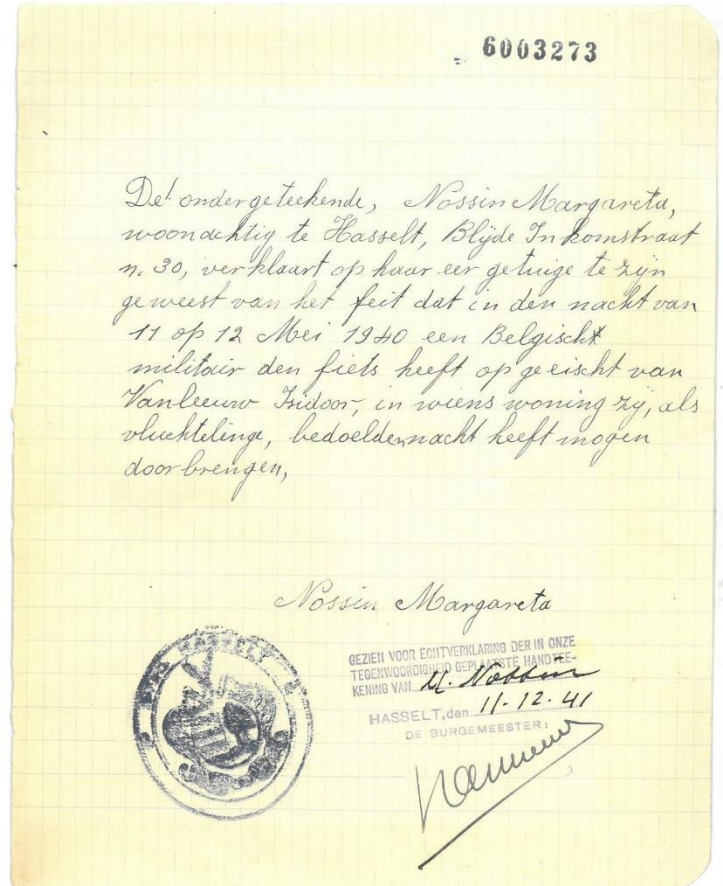 6003273
De ondergeteekende, Nossin Margareta,
woonachtig te Hasselt, Blijde Inkomstraat
n. 30, verklaart op haar eer getuige te zijn
geweest van het feit dat in den nacht van
11 op 12 Mei 1940 een Belgisch
militair den fiets heeft opgeëischt van
Vanleeuw Isidoor, in wiens woning zij, als
vluchtelinge, bedoelden nacht heeft mogen
doorbrengen,
Nossin Margareta
GEZIEN VOOR ECHTVERKLARING DER IN ONZE
TEGENWOORDIGHEID GEPLAATSTE HANDTEE-
KENING VAN M. Nossin
HASSELT, den 11-12-41
DE BURGEMEESTER:
HASSELT